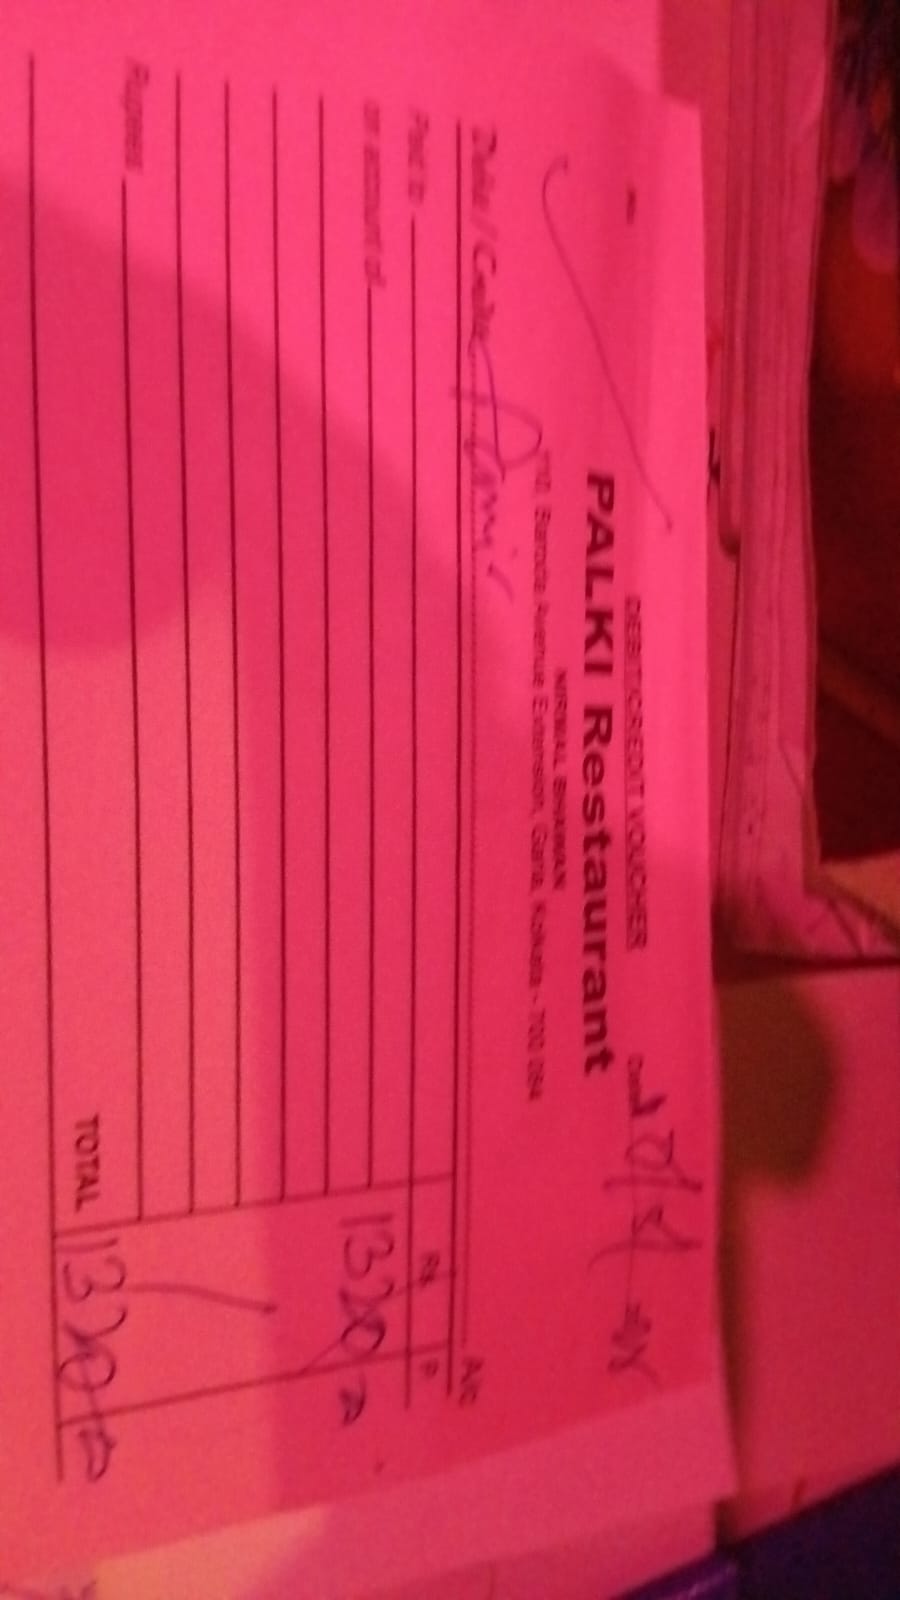 DEBIT/CREDIT VOUCHER
PALKI Restaurant
NIRMAL BHAWAN
170, Baroda Avenue Extension, Garia, Kolkata - 700 084
Date
Debit / Credit A/c
Paid to Rs. P.
on account of 1320
Rupees
TOTAL 1320